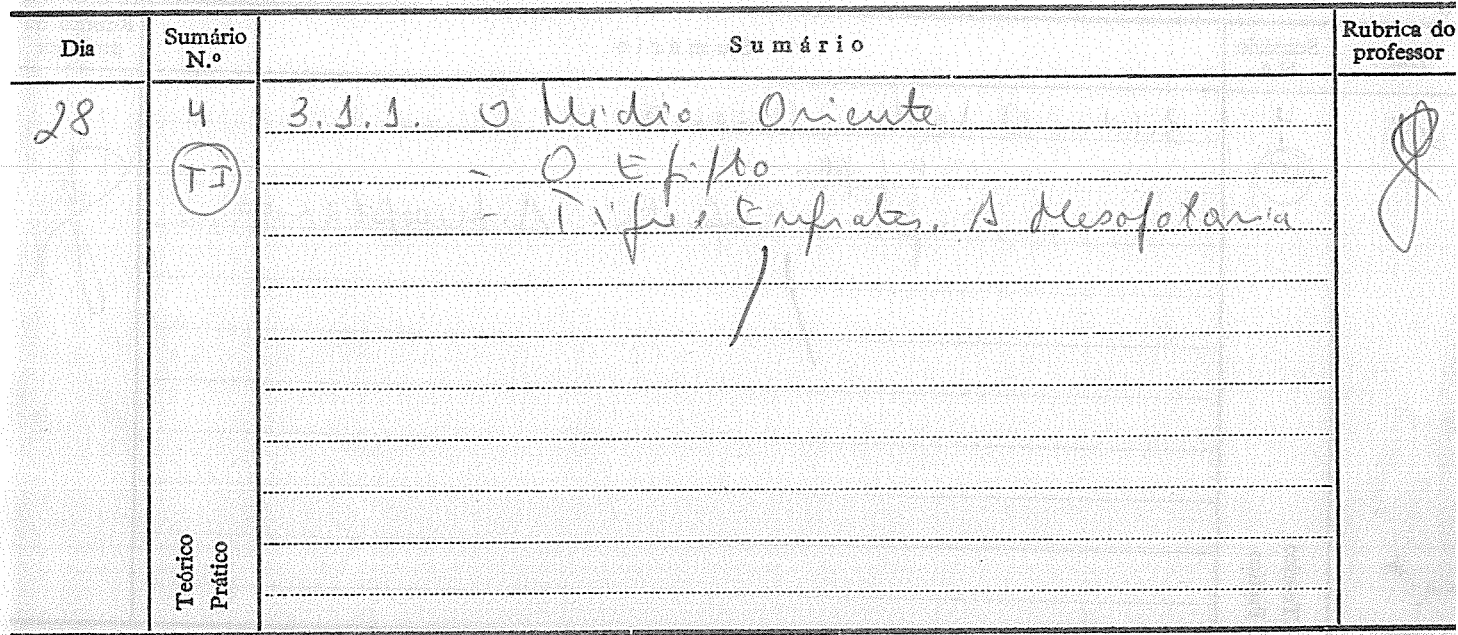 Dia Sumário N.º Sumário Rubrica do professor
28 4 3.1.1. O Médio Oriente
TI - O Egipto
- Tigre e Eufrates. A Mesopotamia
Teórico
Prático